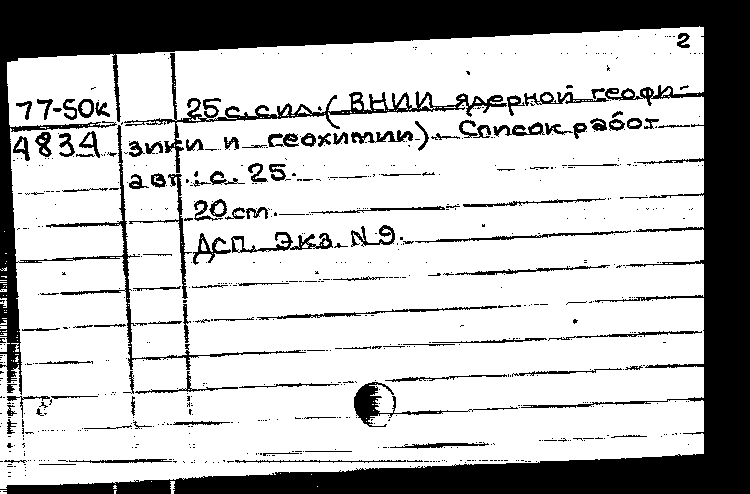 2
77-50к 25 с. с ил. (ВНИИ ядерной геофи-
4834 зики и геохимии). Список работ
авт.: с. 25.
20 см.
ДСП. Экз. N 9.
8